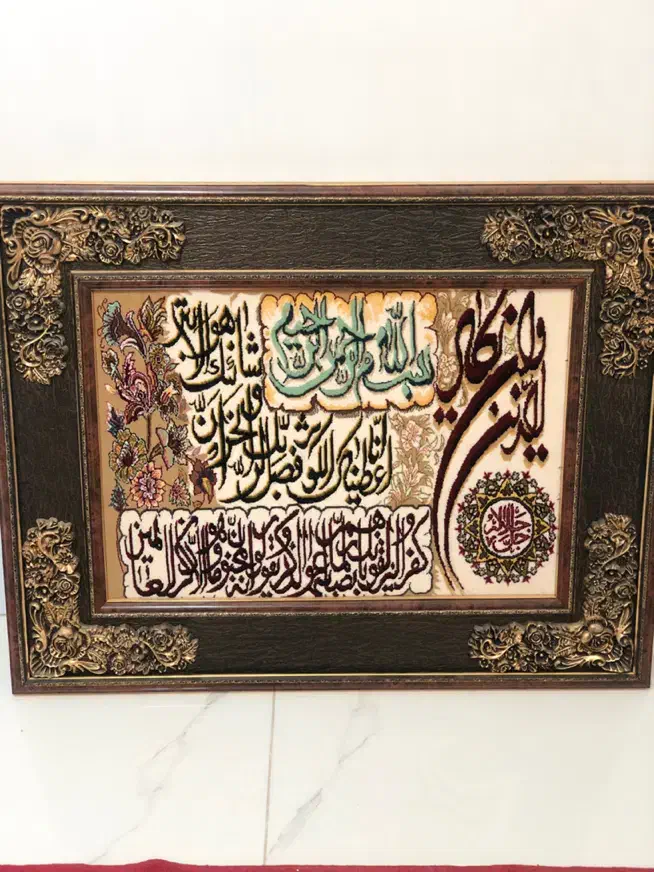 بسم الله الرحمن الرحيم
وان يكاد
الذين
كفروا ليزلقونك بابصارهم لما سمعوا الذكر ويقولون انه لمجنون وما هو الا ذكر للعالمين
انا اعطيناك الكوثر فصل لربك وانحر ان
شانئك هو الابتر
جل جلاله